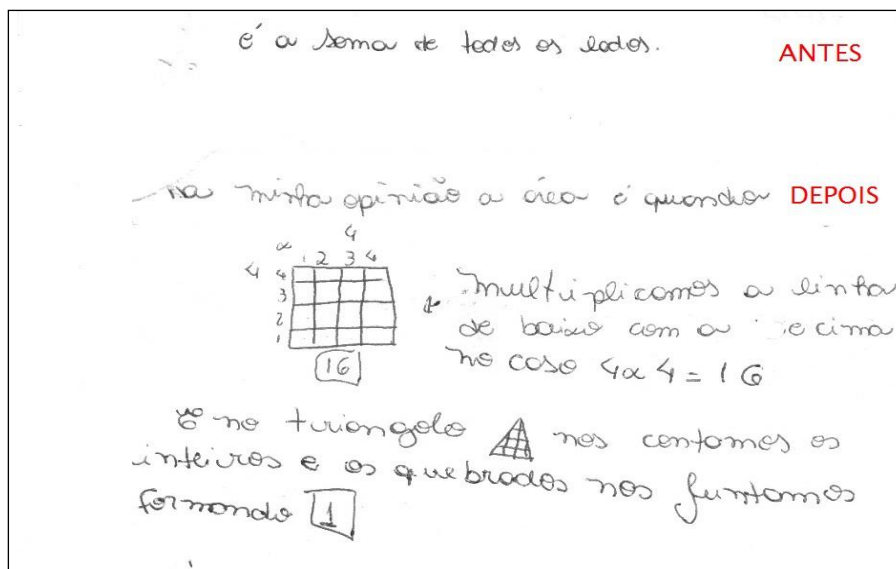 é a soma de todos os lados. ANTES
na minha opinião a área é quando DEPOIS
4
x 1 2 3 4
4 4
3
2
1
multiplicamos a linha
de baixo com a e cima
16
no caso 4x4=16
E no triangolo nos contamos os
inteiros e os quebrados nos juntamos
formando 1